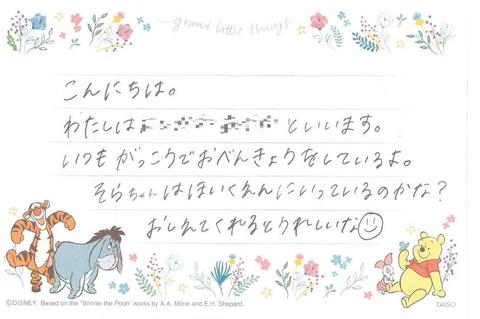 grand little things
こんにちは。
わたしは といいます。
いつも がっこうでおべんきょうをしているよ。
そらちゃんはほいくえんにいっているのかな?
おしえてくれるとうれしいな
©DISNEY. Based on the "Winnie the Pooh" works by A.A. Milne and E.H. Shepard.
DAISO